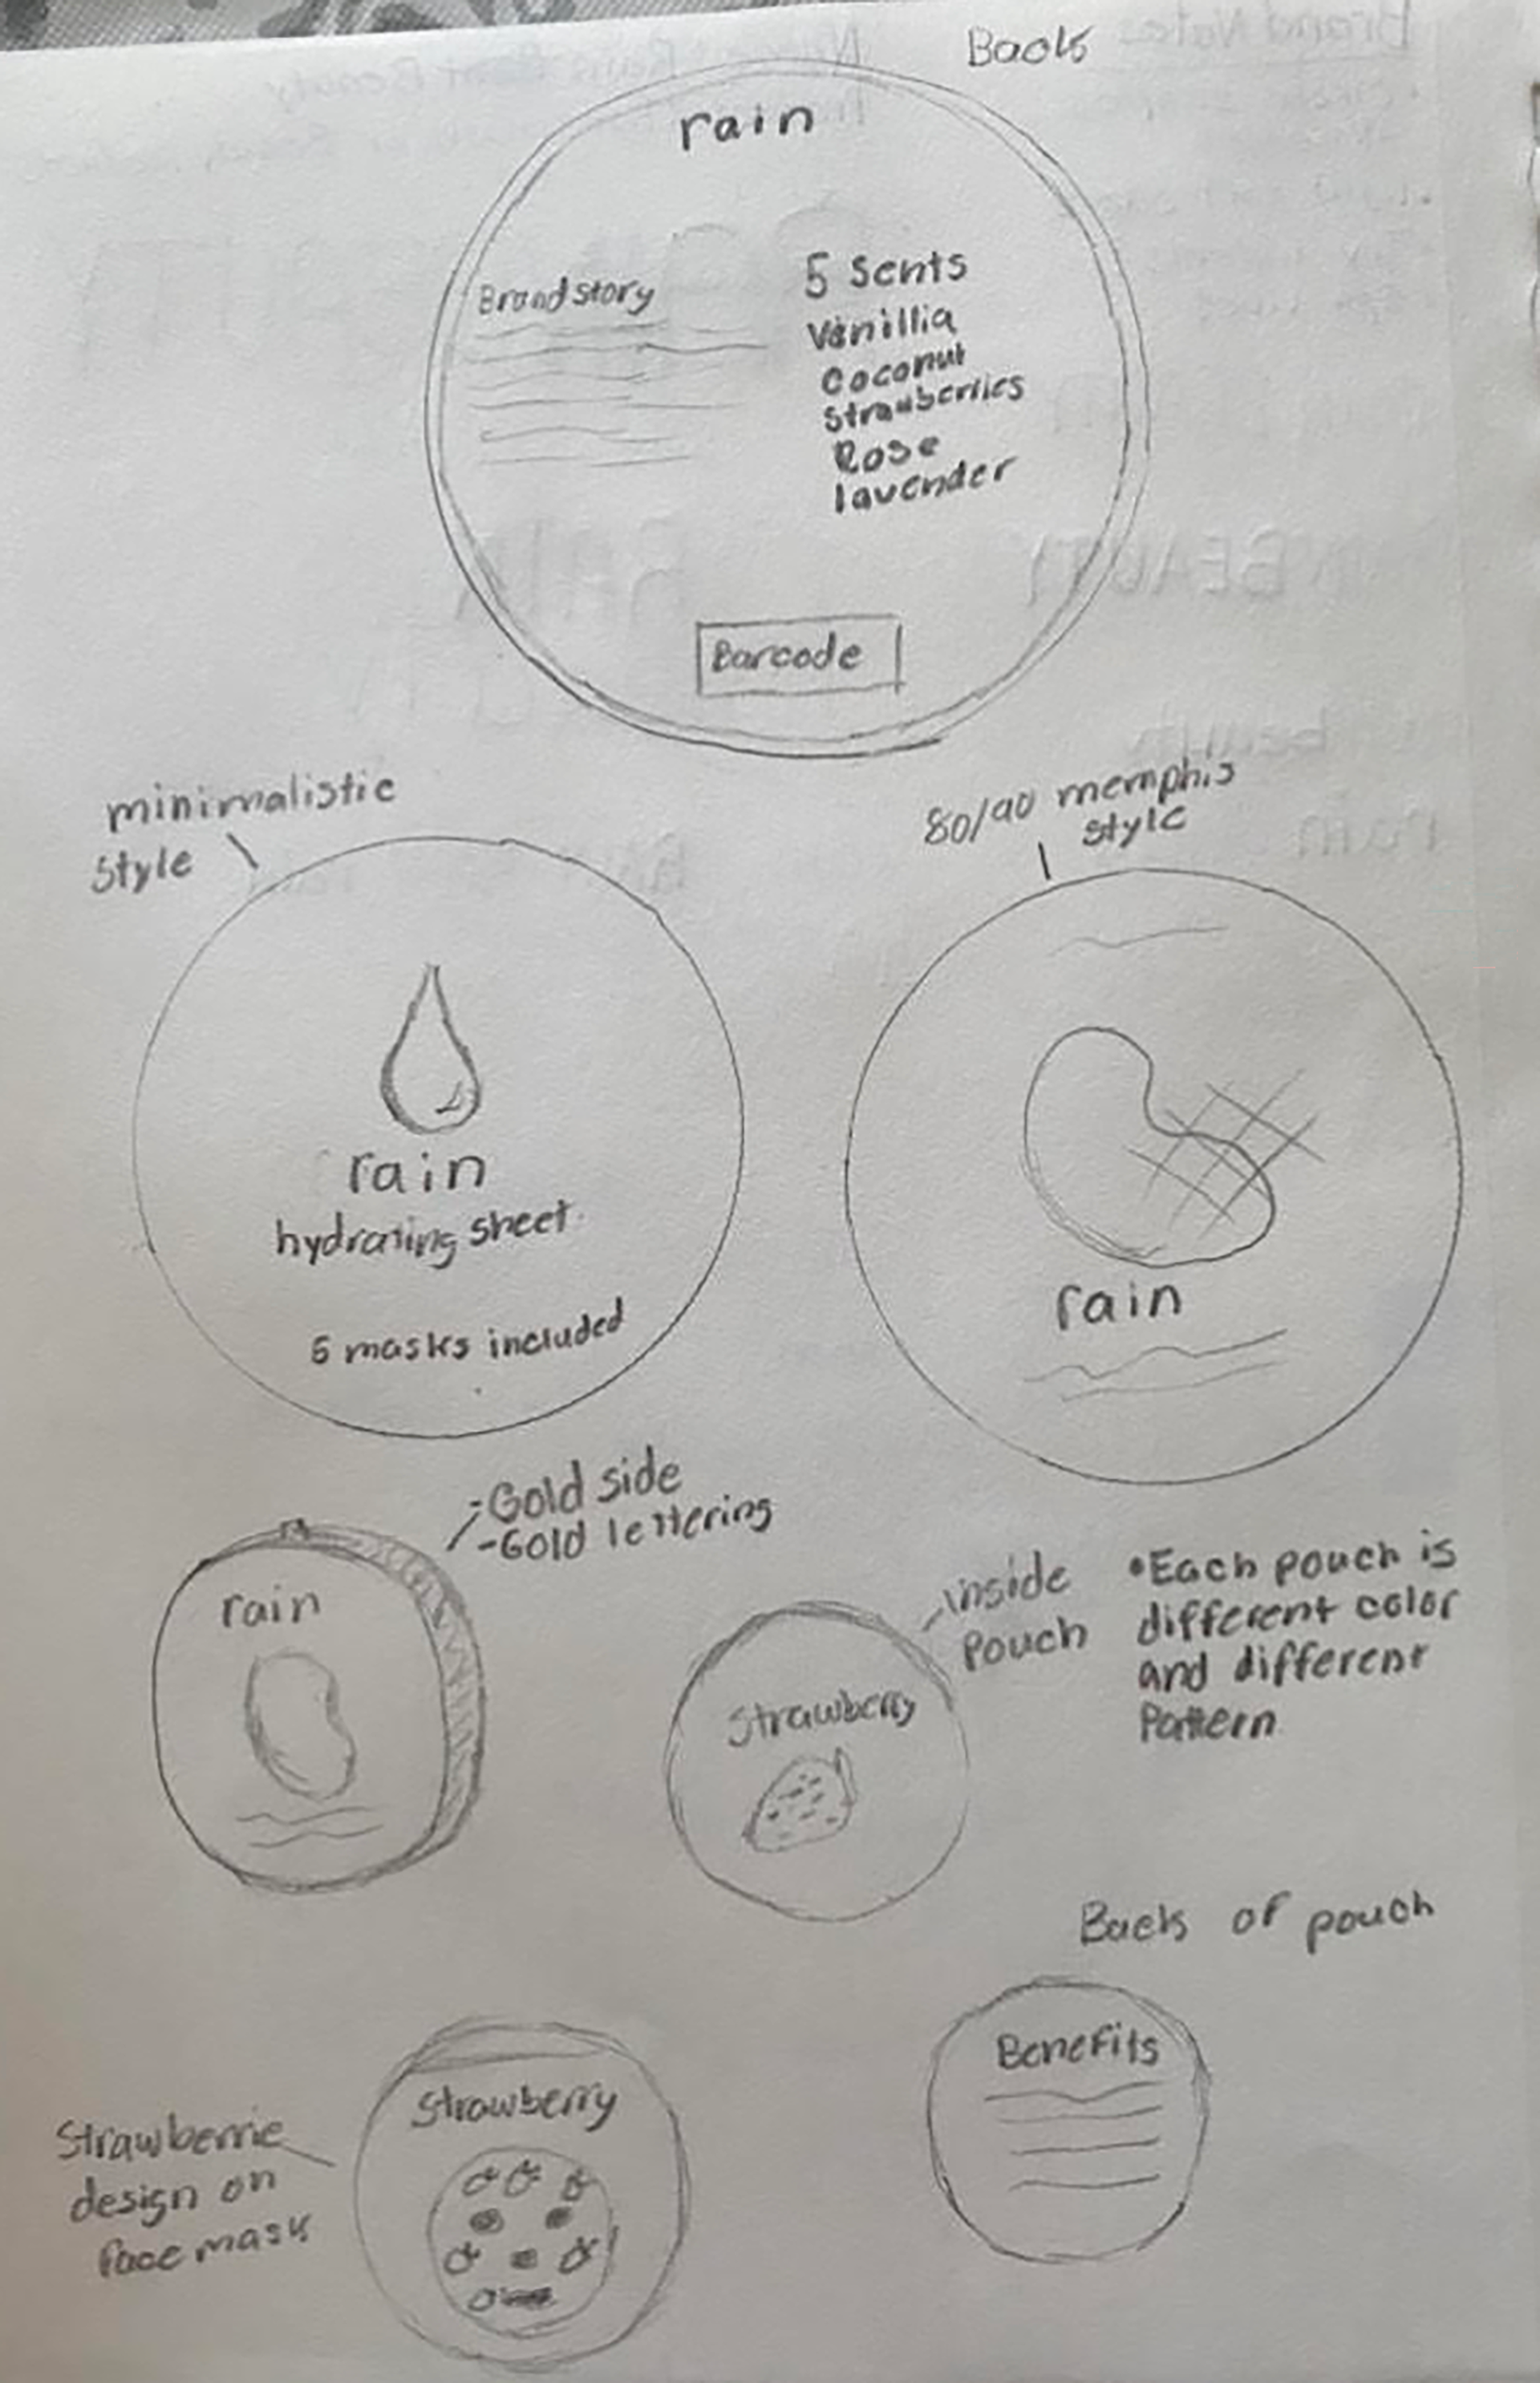 Back
rain
Brand story
5 Sents
Vanillia
Coconut
Strawberries
Rose
lavender
Barcode
minimalistic
Style
80/90 memphis
style
rain
hydrating sheet
5 masks included
rain
-Gold side
-Gold lettering
rain
inside
Pouch
•Each pouch is
different color
and different
Pattern
Strawberry
Back of pouch
Benefits
Strawberrie
design on
face mask
Strawberry